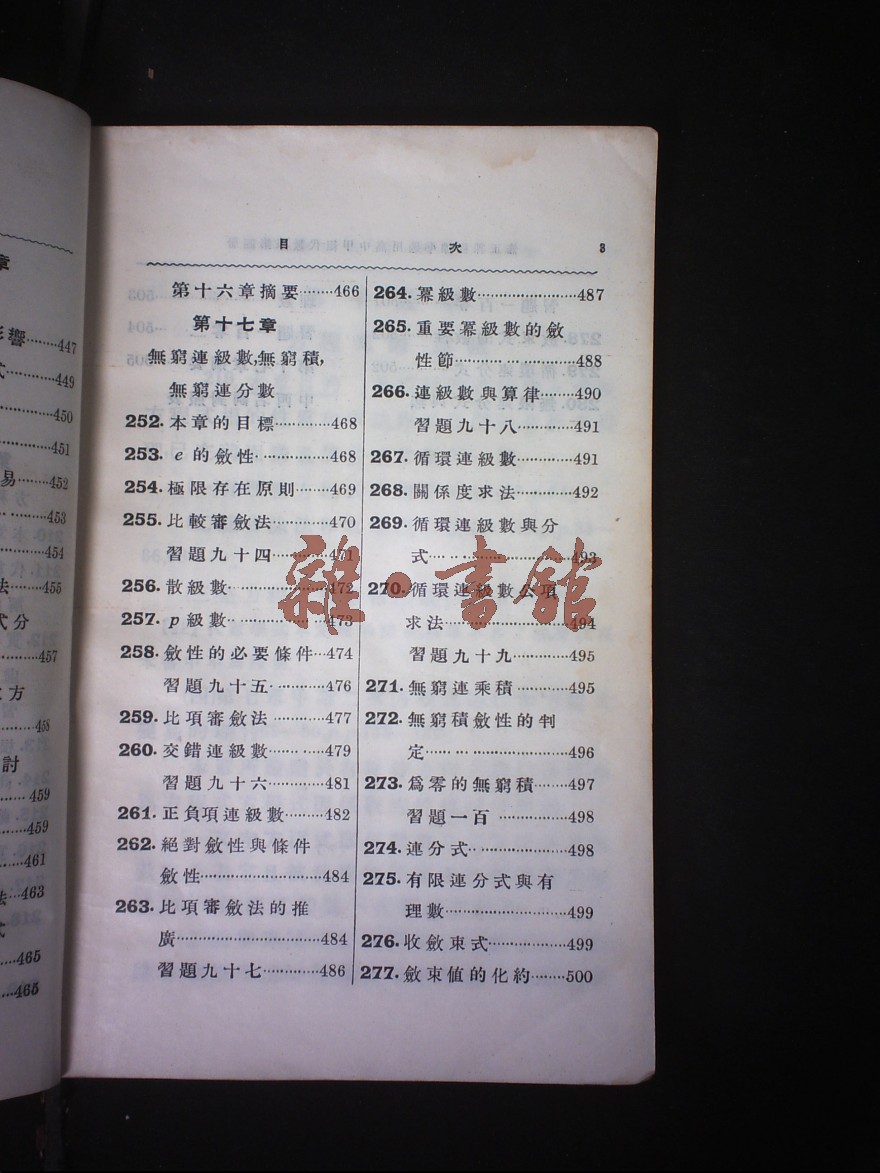 目 次 3
第十六章摘要········466
第十七章
無窮連級數,無窮積,
無窮連分數
252. 本章的目標············468
253. e 的斂性············468
254. 極限存在原則········469
255. 比較審斂法··········470
習題九十四············471
256. 散級數············472
257. p 級數············473
258. 斂性的必要條件···474
習題九十五············476
259. 比項審斂法 ·········477
260. 交錯連級數·········479
習題九十六············481
261. 正負項連級數·········482
262. 絕對斂性與條件
斂性························484
263. 比項審斂法的推
廣······························484
習題九十七············486
264. 冪級數······················487
265. 重要冪級數的斂
性節························488
266. 連級數與算律·······490
習題九十八············491
267. 循環連級數············491
268. 關係度求法············492
269. 循環連級數與分
式······························493
270. 循環連級數公項
求法························494
習題九十九············495
271. 無窮連乘積············495
272. 無窮積斂性的判
定······························496
273. 爲零的無窮積······497
習題一百 ···············498
274. 連分式·····················498
275. 有限連分式與有
理數························499
276. 收斂束式···············499
277. 斂束値的化約·······500
章
影響········447
式·········449
450
451
易····452
453
454
法······455
式分
457
方
458
討
459
459
461
法···463
式
465
465
雜·書館